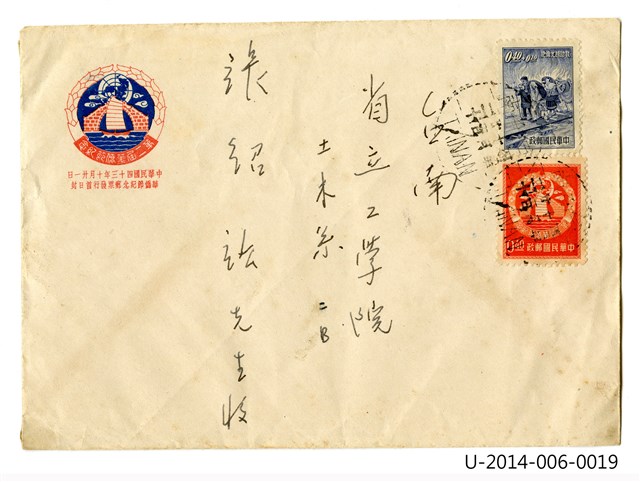 台南
省立工學院
土木系二B
張紹先生收
第二屆華僑節紀念
中華民國四十三年十月廿一日
華僑節紀念郵票發行首日封
0.40+0.10
中華民國郵政
中華民國郵政
TAINAN
U-2014-006-0019